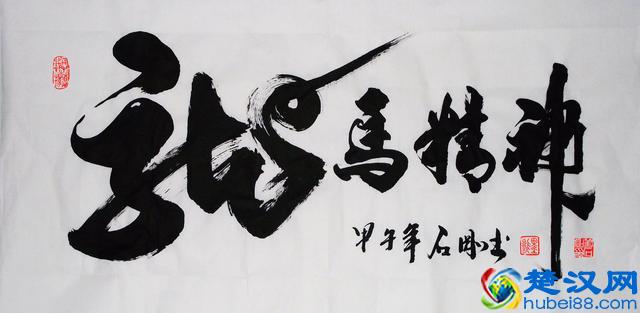 龍馬精神
甲午年 石刚书
楚汉网
hubei88.com